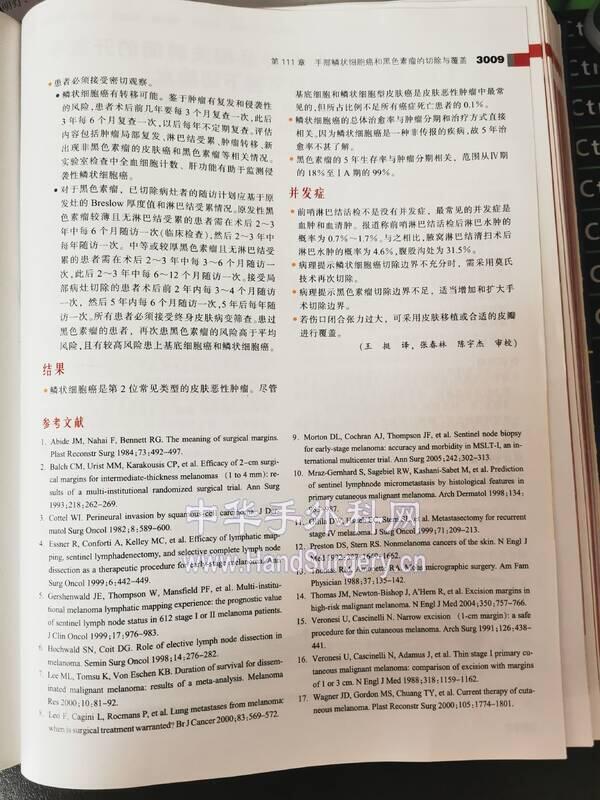 第 111 章 手部鳞状细胞癌和黑色素瘤的切除与覆盖 3009
• 患者必须接受密切观察。
• 鳞状细胞癌有转移可能。鉴于肿瘤有复发和侵袭性
的风险,患者术后前几年要每 3 个月复查一次,此后
3 年每 6 个月复查一次,以后每年不定期复查。评估
内容包括肿瘤局部复发、淋巴结受累、肿瘤转移、新
出现非黑色素瘤的皮肤癌和黑色素瘤等相关情况。
实验室检查中全血细胞计数、肝功能有助于监测侵
袭性鳞状细胞癌。
• 对于黑色素瘤，已切除病灶者的随访计划应基于原
发灶的 Breslow 厚度值和淋巴结受累情况。原发性黑
色素瘤较薄且无淋巴结受累的患者需在术后 2～3
年中每 6 个月随访一次(临床检查),然后 2～3 年中
每年随访一次。中等或较厚黑色素瘤且无淋巴结受
累的患者需在术后 2～3 年中每 3～6 个月随访一
次,此后 2～3 年中每 6～12 个月随访一次。接受局
部病灶切除的患者术后前 2 年内每 3～4 个月随访
一次，然后 5 年内每 6 个月随访一次,5 年后每年随
访一次。所有患者必须接受终身皮肤病变筛查。患过
黑色素瘤的患者，再次患黑色素瘤的风险高于平均
风险,且有较高风险患上基底细胞癌和鳞状细胞癌。
结果
• 鳞状细胞癌是第 2 位常见类型的皮肤恶性肿瘤。尽管
基底细胞和鳞状细胞型皮肤癌是皮肤恶性肿瘤中最常
见的,但所占比例不足所有癌症死亡患者的 0.1%。
• 鳞状细胞癌的总体治愈率与肿瘤分期和治疗方式直接
相关。因为鳞状细胞癌是一种非传报的疾病,故 5 年治
愈率不甚了解。
• 黑色素瘤的 5 年生存率与肿瘤分期相关，范围从Ⅳ期
的 18%至ⅠA 期的 99%。
并发症
• 前哨淋巴结活检不是没有并发症，最常见的并发症是
血肿和血清肿。报道称前哨淋巴结活检后淋巴水肿的
概率为 0.7%～1.7%。与之相比,腋窝淋巴结清扫术后
淋巴水肿的概率为 4.6%,腹股沟处为 31.5%。
• 病理提示鳞状细胞癌切除边界不充分时，需采用莫氏
技术再次切除。
• 病理提示黑色素瘤切除边界不足，适当增加和扩大手
术切除边界。
• 若伤口闭合张力过大，可采用皮肤移植或合适的皮瓣
进行覆盖。
(王 挺 译,张春林 陈宇杰 审校)
参考文献
1. Abide JM, Nahai F, Bennett RG. The meaning of surgical margins.
Plast Reconstr Surg 1984;73:492-497.
2. Balch CM, Urist MM, Karakousis CP, et al. Efficacy of 2-cm surgi-
cal margins for intermediate-thickness melanomas (1 to 4 mm): re-
sults of a multi-institutional randomized surgical trial. Ann Surg
1993;218:262-269.
3. Cottel WI. Perineural invasion by squamous-cell carcinoma. J Der-
matol Surg Oncol 1982;8:589-600.
4. Essner R, Conforti A, Kelley MC, et al. Efficacy of lymphatic map-
ping, sentinel lymphadenectomy, and selective complete lymph node
dissection as a therapeutic procedure for early-stage melanoma.
Surg Oncol 1999;6:442-449.
5. Gershenwald JE, Thompson W, Mansfield PF, et al. Multi-institu-
tional melanoma lymphatic mapping experience: the prognostic value
of sentinel lymph node status in 612 stage I or II melanoma patients.
J Clin Oncol 1999;17:976-983.
6. Hochwald SN, Coit DG. Role of elective lymph node dissection in
melanoma. Semin Surg Oncol 1998;14:276-282.
7. Lee ML, Tomsu K, Von Eschen KB. Duration of survival for dissem-
inated malignant melanoma: results of a meta-analysis. Melanoma
Res 2000;10:81-92.
8. Leo F, Cagini L, Rocmans P, et al. Lung metastases from melanoma:
when is surgical treatment warranted? Br J Cancer 2000;83:569-572.
9. Morton DL, Cochran AJ, Thompson JF, et al. Sentinel node biopsy
for early-stage melanoma: accuracy and morbidity in MSLT-I, an in-
ternational multicenter trial. Ann Surg 2005;242:302-313.
10. Mraz-Gernhard S, Sagebiel RW, Kashani-Sabet M, et al. Prediction
of sentinel lymphnode micrometastasis by histological features in
primary cutaneous malignant melanoma. Arch Dermatol 1998;134:
983-987.
11. et al. Metastasectomy for recurrent
stage IV melanoma. J Surg Oncol 1999;71:209-213.
12. Preston DS, Stern RS. Nonmelanoma cancers of the skin. N Engl J
Med 1992;327:1649-1662.
13. micrographic surgery. Am Fam
Physician 1988;37:135-142.
14. Thomas JM, Newton-Bishop J, A'Hern R, et al. Excision margins in
high-risk malignant melanoma. N Engl J Med 2004;350:757-766.
15. Veronesi U, Cascinelli N. Narrow excision (1-cm margin): a safe
procedure for thin cutaneous melanoma. Arch Surg 1991;126:438-
441.
16. Veronesi U, Cascinelli N, Adamus J, et al. Thin stage I primary cu-
taneous malignant melanoma: comparison of excision with margins
of 1 or 3 cm. N Engl J Med 1988;318:1159-1162.
17. Wagner JD, Gordon MS, Chuang TY, et al. Current therapy of cuta-
neous melanoma. Plast Reconstr Surg 2000;105:1774-1801.
中华手外科网
www.HandSurgery.cn